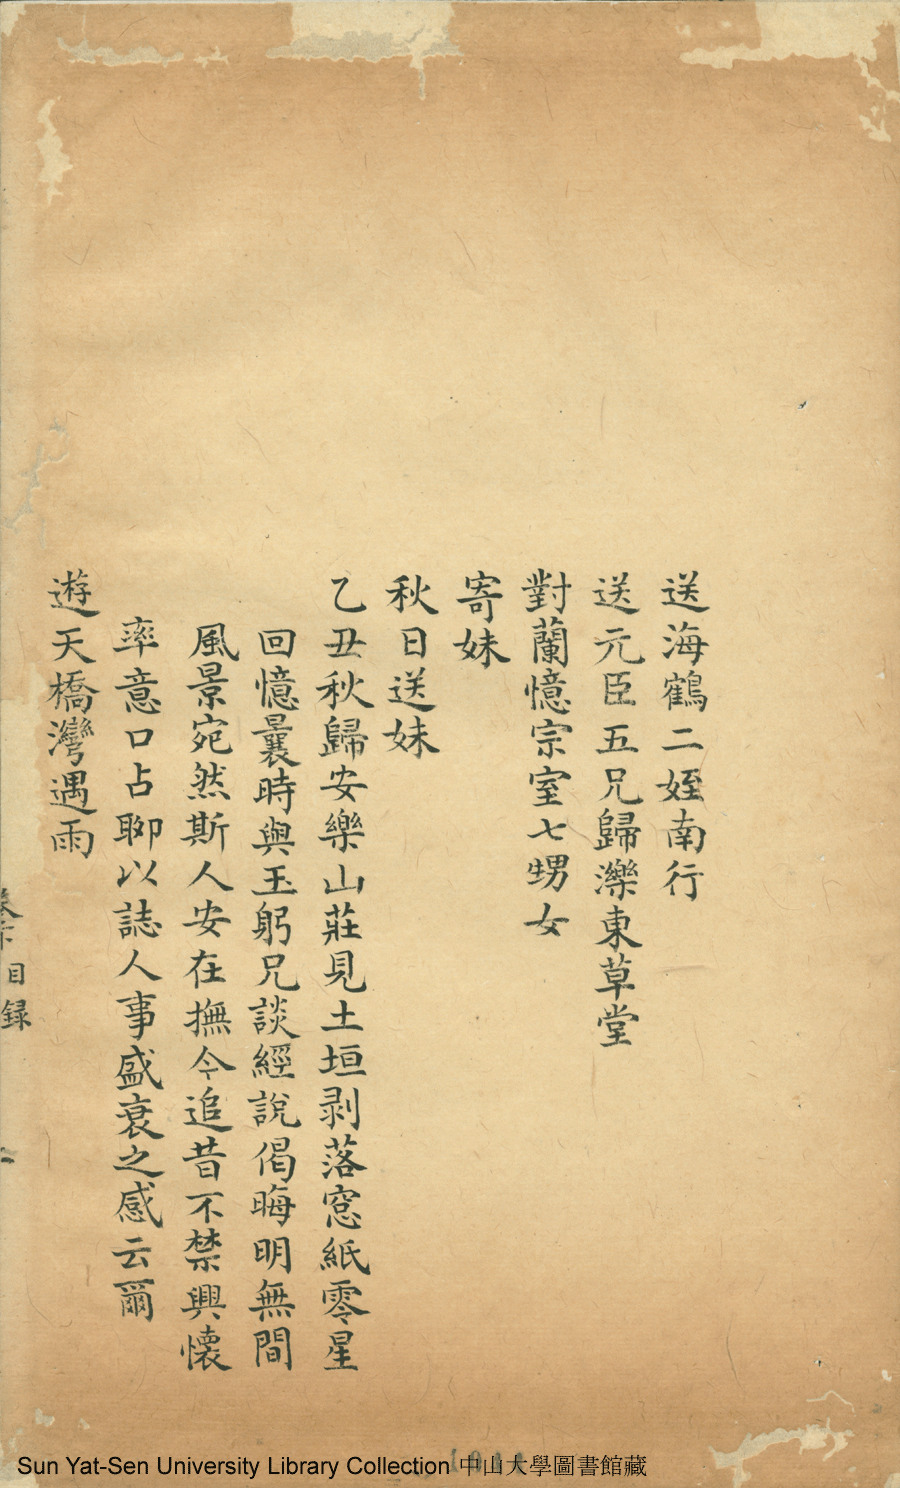 送海鶴二姪南行
送元臣五兄歸濼東草堂
對蘭憶宗室七甥女
寄妹
秋日送妹
乙丑秋歸安樂山莊見土垣剥落窓紙零星
回憶曩時與玉躬兄談經說偈晦明無間
風景宛然斯人安在撫今追昔不禁興懷
率意口占聊以誌人事盛衰之感云爾
遊天橋灣遇雨
目録
Sun Yat-Sen University Library Collection 中山大學圖書館藏